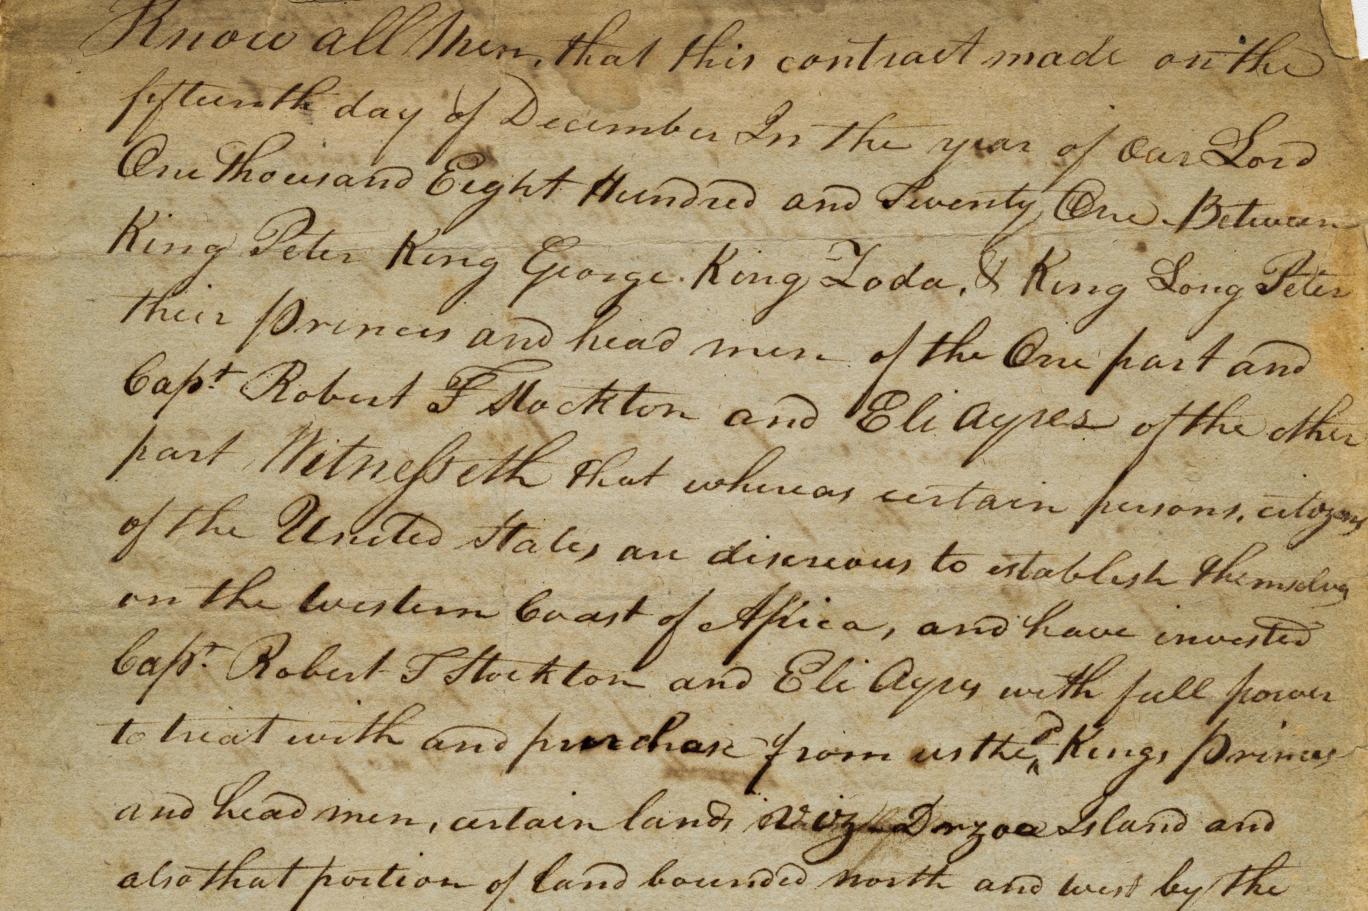 Know all Men, that this contract made on the
fifteenth day of December In the year of our Lord
One Thousand Eight Hundred and Twenty One. Between
King Peter King George. King Zoda, & King Long Peter
their princes and head men of the One part and
Capt. Robert F Stockton and Eli Ayres of the other
part Witnesseth that whereas certain persons, citizens
of the United States are disereous to establish themselves
on the western Coast of Africa, and have invested
Capt. Robert F Stockton and Eli Ayres with full power
to treat with and purchase from us the sd Kings princes
and head men, certain lands viz. Dozoa Island and
also that portion of land bounded north and west by the